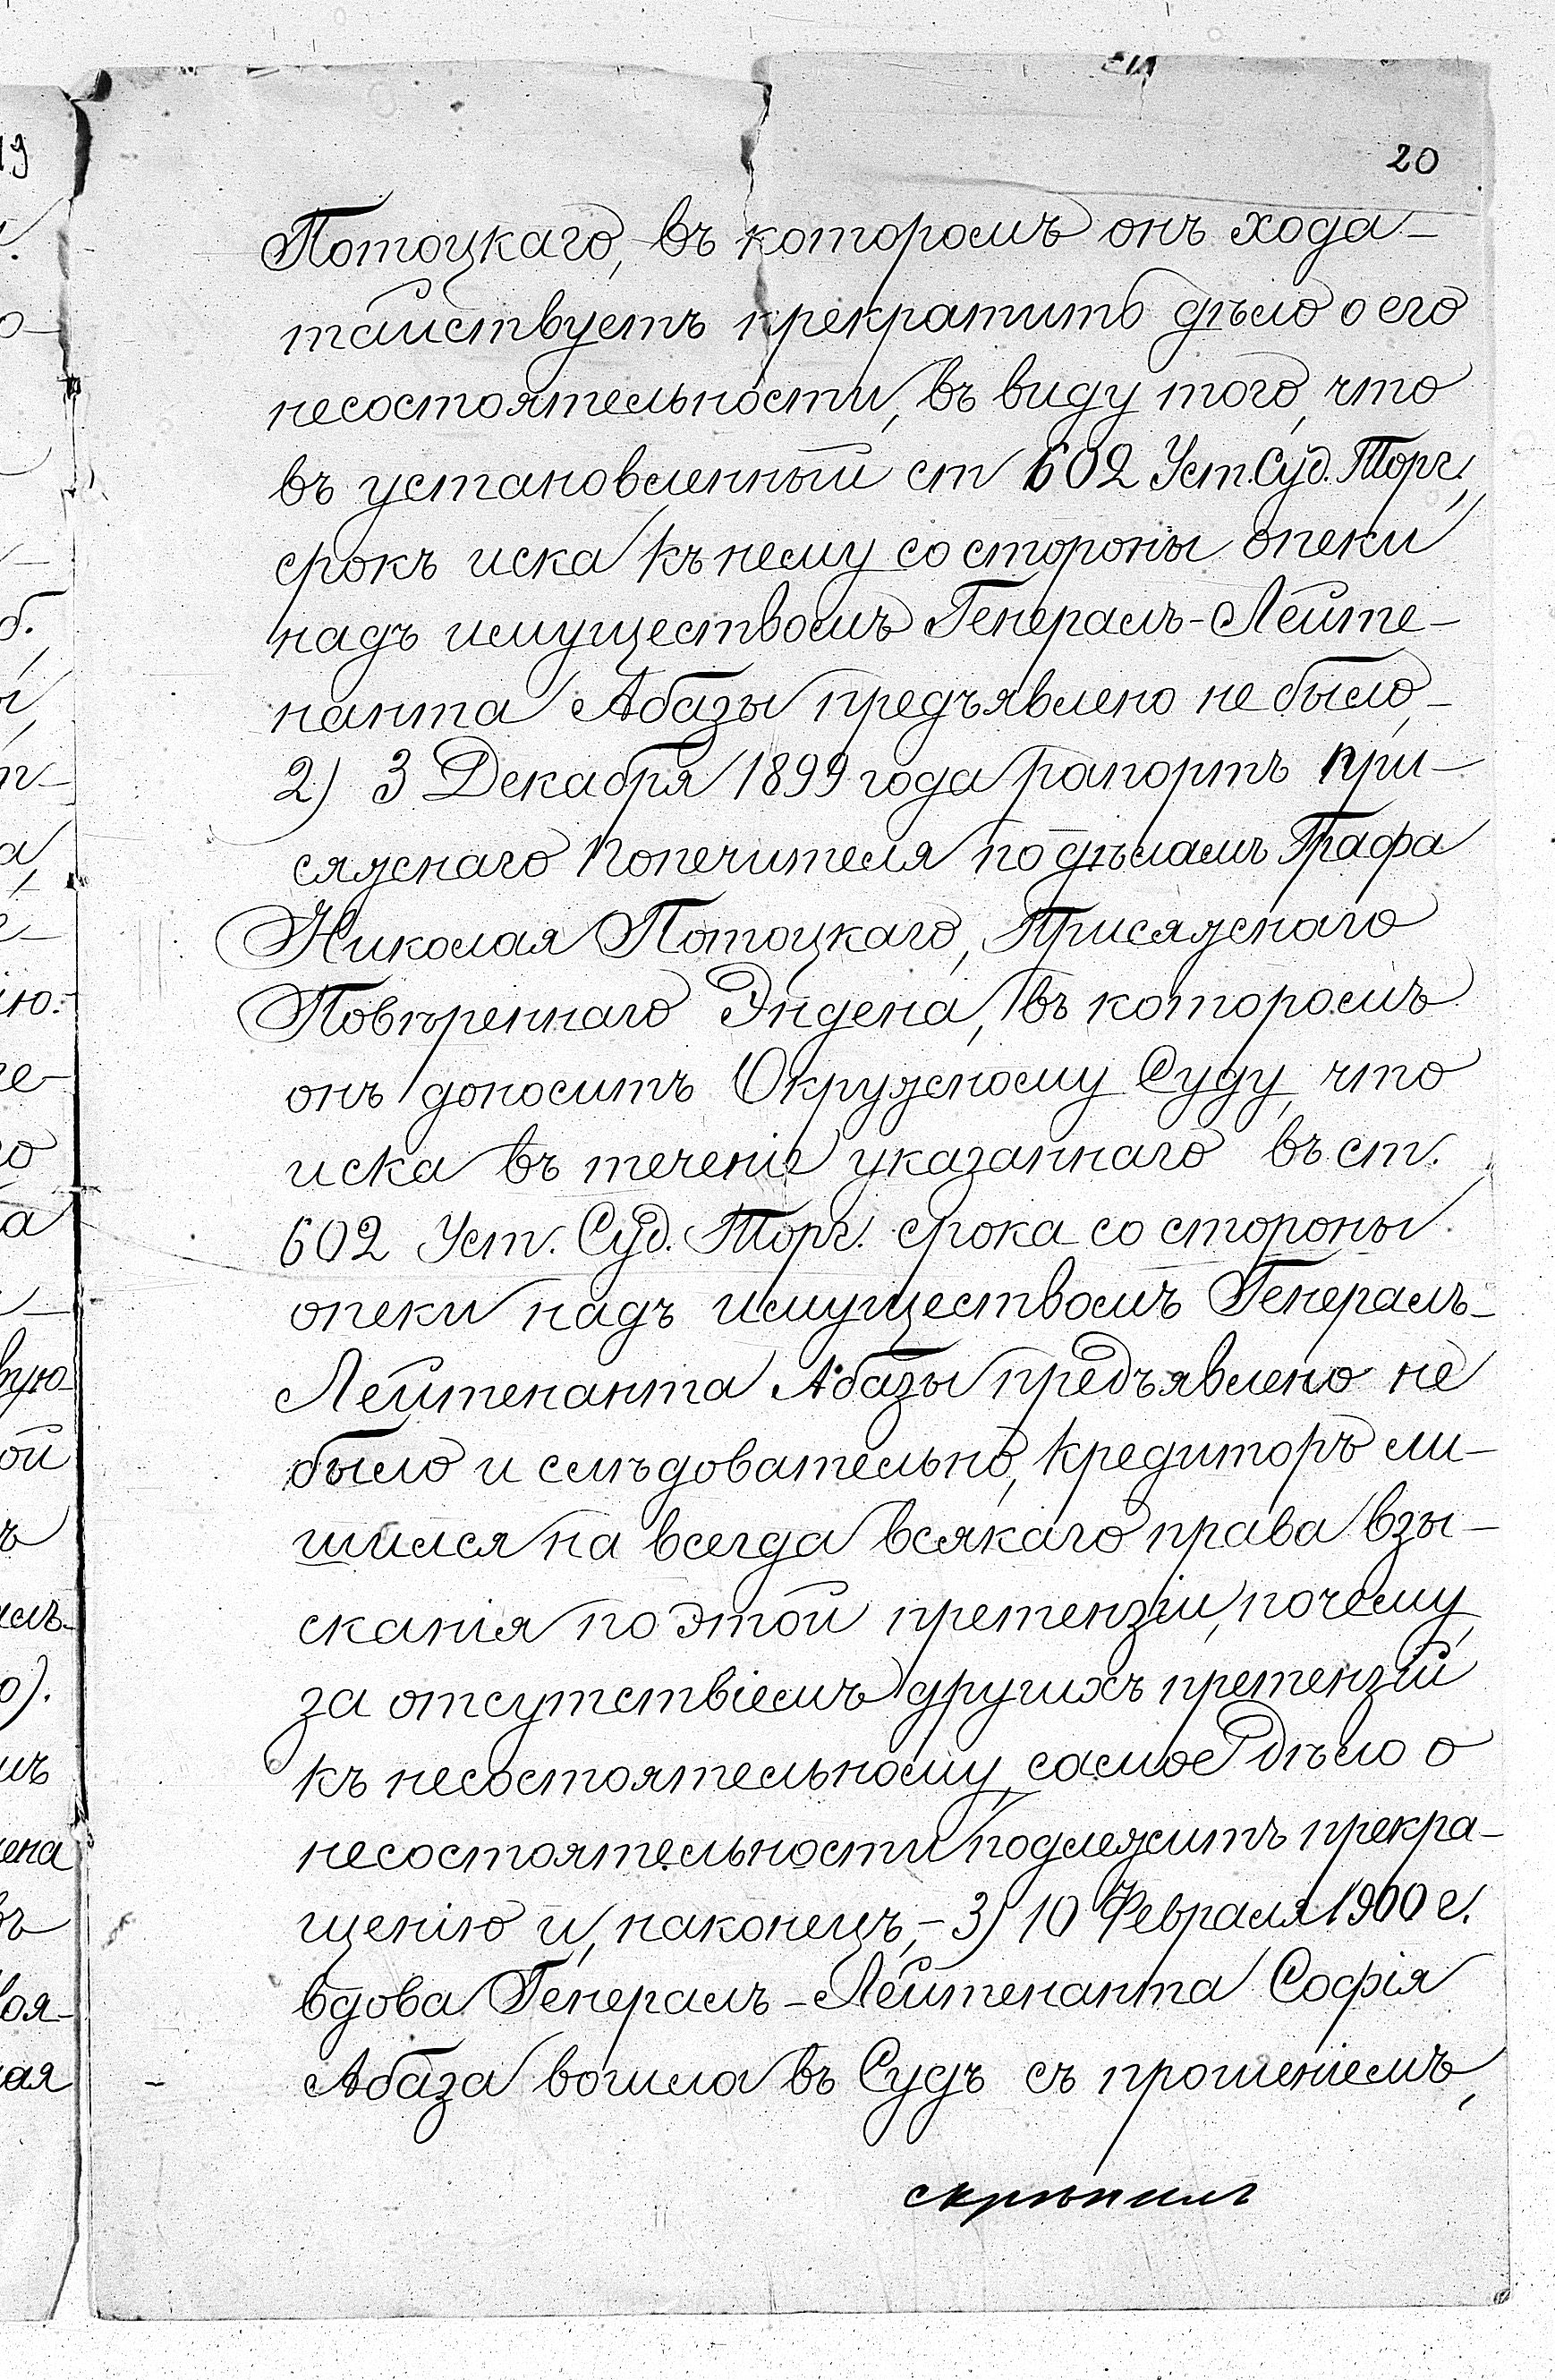 20
Потоцкаго, въ которомъ онъ хода-
тайствуетъ прекратить дѣло о его
несостоятельности, въ виду того, что
въ установленный ст 602 Уст. Суд. Торг.,
срокъ иска къ нему со стороны опеки
надъ имуществомъ Генералъ-Лейте-
нанта Абазы предъявлено не было,-
2) 3 Декабря 1899 года рапортъ при-
сяжнаго попечителя по дѣламъ Графа
Николая Потоцкаго, Присяжнаго
Повѣреннаго Эндена, въ которомъ
онъ доноситъ Окружному Суду, что
иска въ теченіе указаннаго въ ст.
602 Уст. Суд. Торг. срока со стороны
опеки надъ имуществомъ Генералъ-
Лейтенанта Абазы предъявлено не
было и слѣдовательно, кредиторъ ли-
шился на всегда всякаго права взы-
сканія по этой претензіи, почему,
за отсутствіемъ другихъ претензій
къ несостоятельному, самое дѣло о
несостоятельности подлежитъ прекра-
щенію и, наконецъ,- 3) 10 Февраля 1900 г.
вдова Генералъ-Лейтенанта Софія
Абаза вошла въ Судъ съ прошеніемъ,
скрѣпилъ